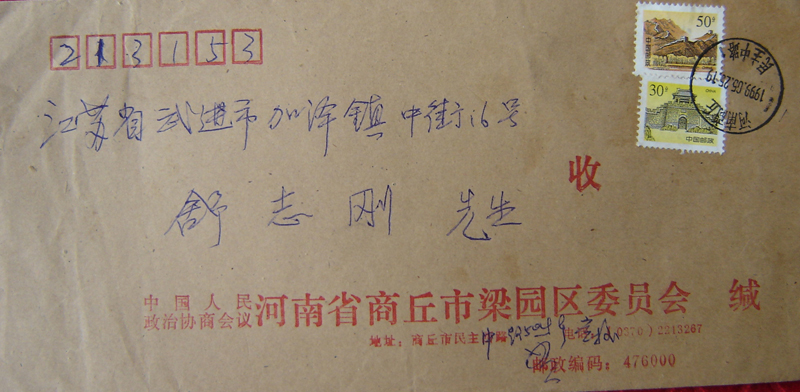 213153
50分
30分
中国邮政
河南商丘
1999.05.26.19
民主中路
江苏省武进市加泽镇中街16号
收
舒志刚 先生
中国人民
政治协商会议 河南省商丘市梁园区委员会 缄
地址：商丘市民主中路 电话：（0370）2213267
邮政编码：476000